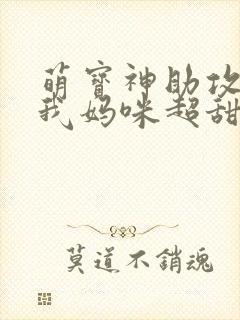 萌寶神助攻
我媽咪超甜
莫道不銷魂